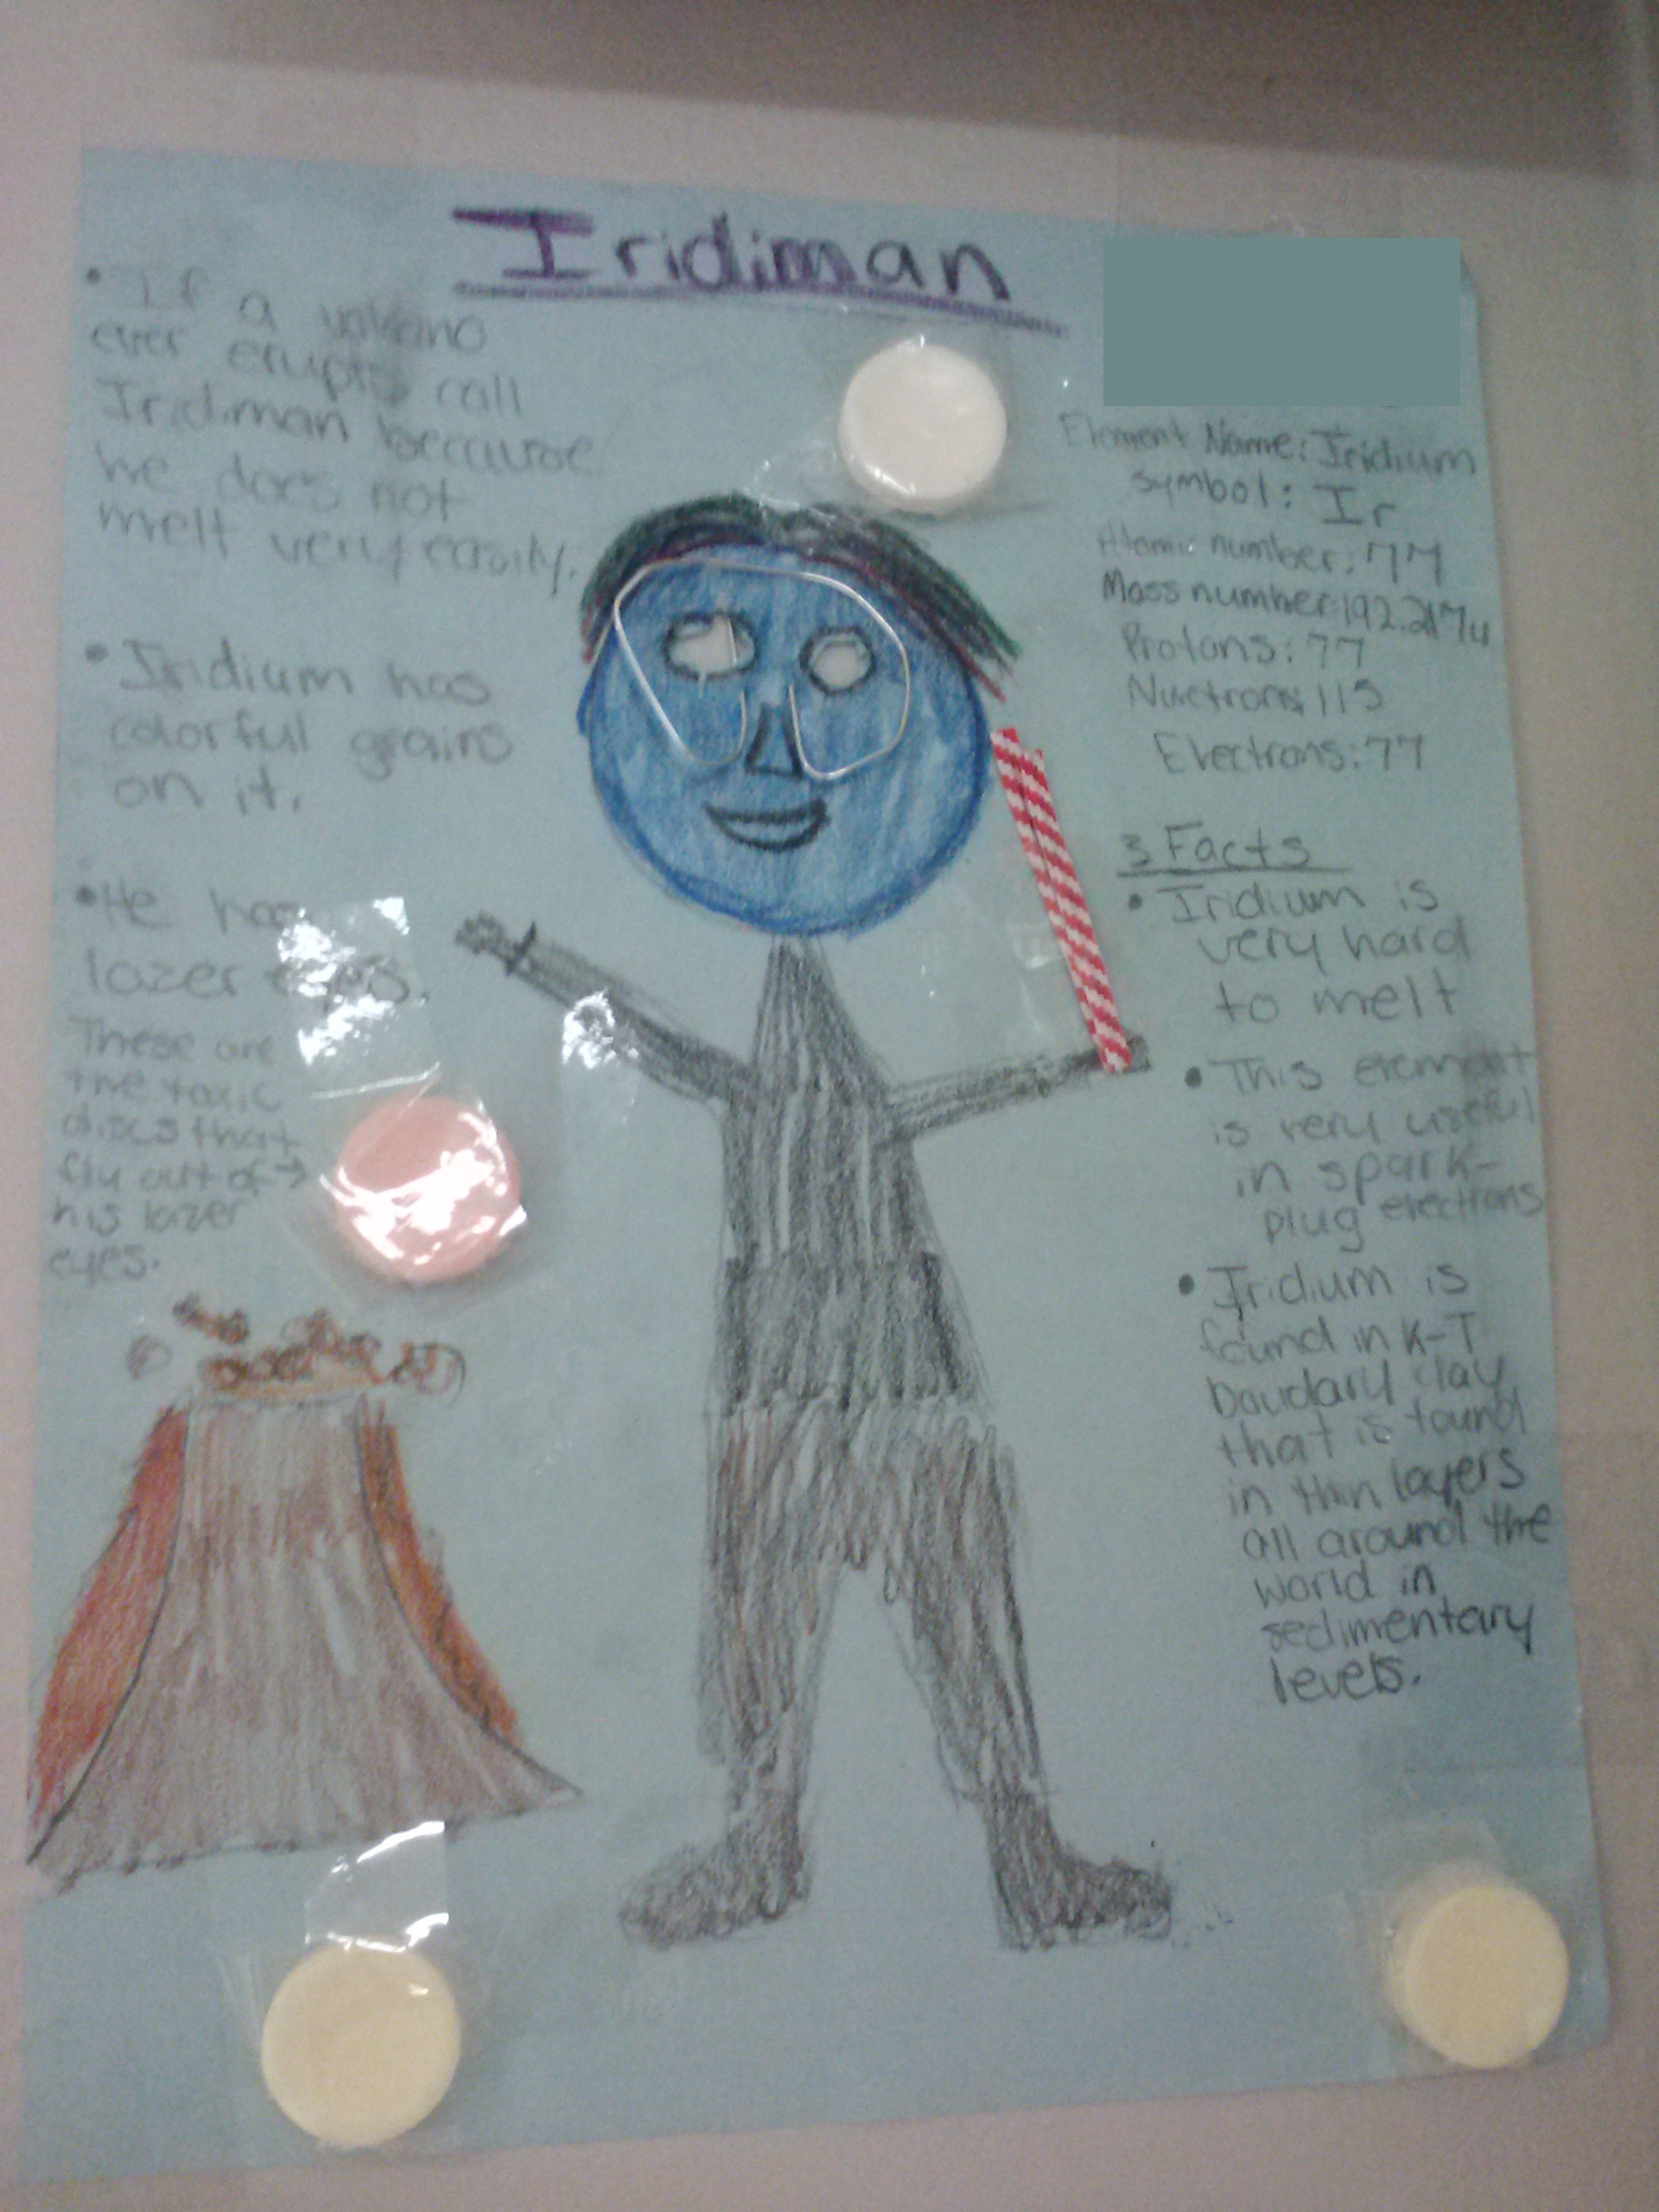 Iridiman
• If a volcano
ever erupts call
Iridiman because
he does not
melt very easily.
• Iridium has
colorful grains
on it.
• He has
lazer eyes.
These are
the toxic
discs that
fly out of →
his lazer
eyes.
Element Name: Iridium
symbol: Ir
Atomic number: 77
Mass number: 192.217u
Protons: 77
115
Electrons: 77
3 Facts
• Iridium is
very hard
to melt
• This element
is very useful
in spark-
plug
• Iridium is
found in K-T
boudary clay
that is found
in thin layers
all around the
world in
sedimentary
levels.